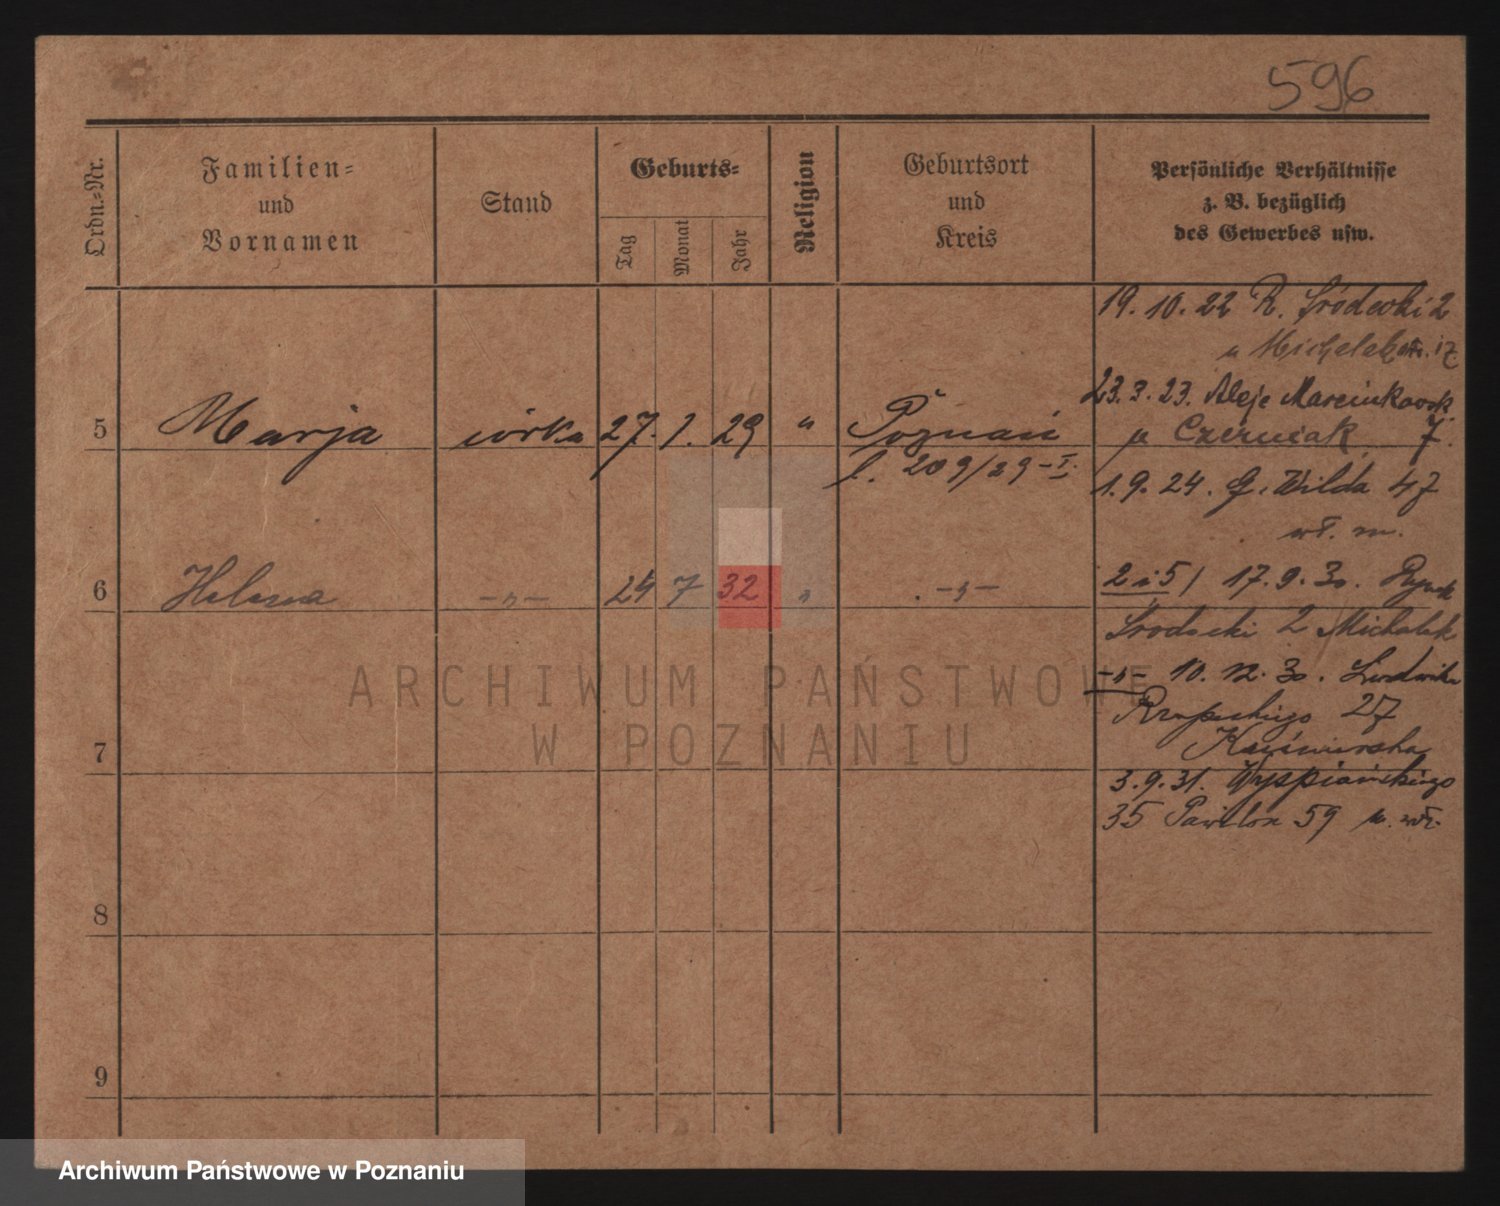 596
Ordn.-Nr.
Familien-
und
Vornamen
Stand
Geburts-
Tag
Monat
Jahr
Religion
Geburtsort
und
Kreis
Persönliche Verhältnisse
z. B. bezüglich
des Gewerbes usw.
5 Marja córka 27. 1. 29 " Poznań
l. 209/29-I.
6 Helena -„- 24 7 32 „ -„-
7
8
9
19. 10. 22 R. Śródecki 2
23. 3. 23. Aleje Marcinkowsk.
u Czerniak 7.
1. 9. 24. G. Wilda 47
wł. m.
2 i 5/ 17. 9. 30. Rynek
Śródecki 2 Michalak
-„- 10. 12. 30. Ludwika
Rzepeckiego 27
Kaźmierska
3. 9. 31. Wyspiańskiego
35 Pawilon 59 u. wł.
ARCHIWUM PAŃSTWOWE
W POZNANIU
Archiwum Państwowe w Poznaniu